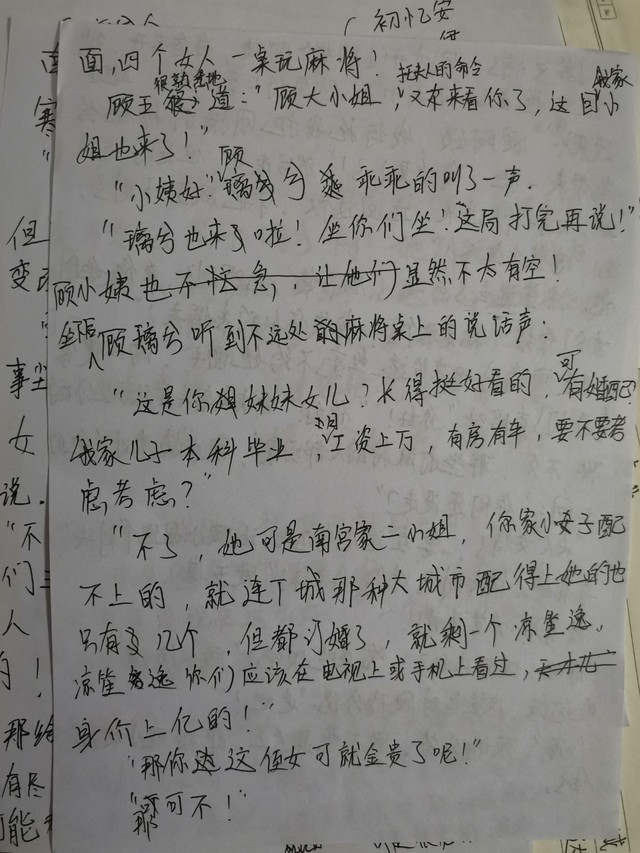 初忆安
面,四个女人一桌玩麻将!
很熟悉地 托夫人的命令 我家
顾玉 道:“顾大小姐,又来看你了,这回小
姐也来了!”
顾
“小姨好”璃兮 乖乖的叫了一声.
“璃兮也来了啦!坐你们坐!这局打完再说!”
顾小姨也不怪急,让他们显然不太有空!
坐下后顾璃兮听到不远处的麻将桌上的说话声:
可
“这是你妹妹女儿?长得挺好看的,有婚配
我家儿子本科毕业,月工资上万,有房有车,要不要考
虑考虑?”
“不了,她可是南宫家二小姐,你家小子配
不上的,就连T城那种大城市配得上她的也
只有几个,但都订婚了,就剩一个凉笙逸。
凉笙逸你们应该在电视上或手机上看过,
身价上亿的!”
“那你这侄女可就金贵了呢!”
“那可不!”
但
变
事
女
说.
“不
们
人
那给
有尽
可能